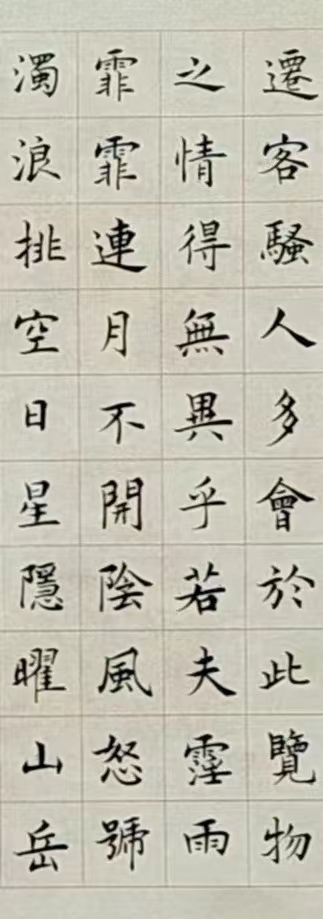 遷客騷人多會於此覽物
之情得無異乎若夫霪雨
霏霏連月不開陰風怒號
濁浪排空日星隱曜山岳